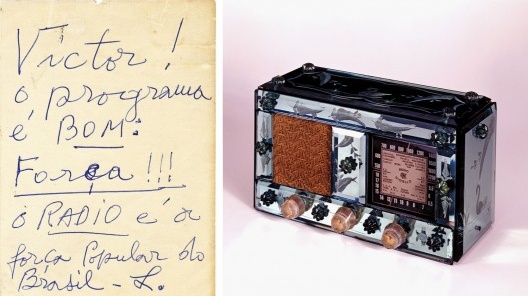 Victor !
o programa
é BOM:
Força !!!
o RADIO é a
força Popular do
Brasil - L.